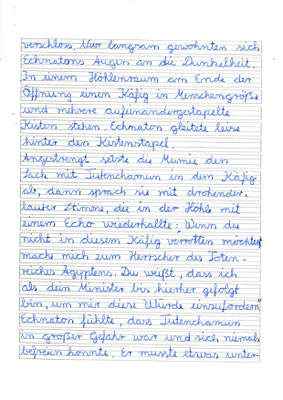 verschloss. Nur langsam gewöhnten sich
Echnatons Augen an die Dunkelheit.
In einem Höhlenraum am Ende der
Öffnung einen Käfig in Menschengröße
und mehrere aufeinandergestapelte
Kisten stehen. Echnaton gleitete leise
hinter den Kistenstapel.
Angestrengt setzte die Mumie den
Sack mit Tutenchamun in den Käfig
ab, dann sprach sie mit drohender,
lauter Stimme, die in der Höhle mit
einem Echo wiederhallte: Wenn du
nicht in diesem Käfig verrotten möchtest
mache mich zum Herrscher des Toten-
reiches Ägyptens. Du weißt, dass ich
als dein Minister bis hierher gefolgt
bin, um mir diese Würde einzufordern"
Echnaton fühlte, dass Tutenchamun
in großer Gefahr war und sich niemals
befreien konnte. Er musste etwas unter-